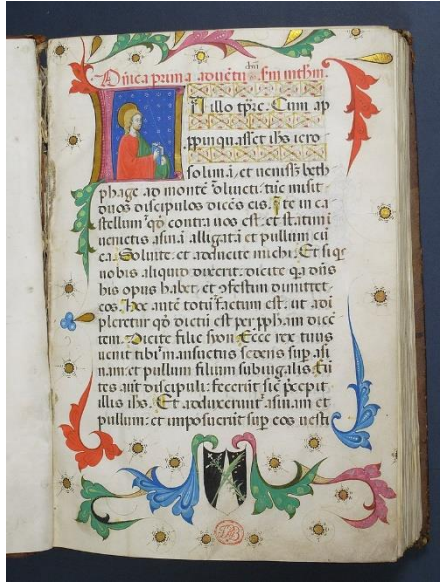 Dn̄ica prima aduētu dn̄i Scm̄ mthm̄.
In illo tp̄re. Cum ap
ppinquasset ih̄s iero
solimā, et uenisset beth
phage ad montē oliueti, tūc misit
duos discipulos dicēs eis. Ite in ca
stellum qd̄ contra uos est, et statim
inuenietis asinā alligatā et pullum cū
ea. Soluite, et adducite michi. Et si q̄s
uobis aliquid dixerit, dicite q̄a dn̄s
his opus habet, et 9festim dimittet
eos. Hoc autē totū factum est, ut adī
pleretur qd̄ dictū est per pp̄ham dicē
tem. Dicite filie syon. Ecce rex tuus
uenit tibi mansuetus sedens sup̄ asi
nam, et pullum filium subiugalis. Eū
tes aūt discipuli, fecerūt sic̄ p̄cepit
illis ih̄s. Et adduxerunt asinam et
pullum, et imposuerūt sup̄ eos uesti